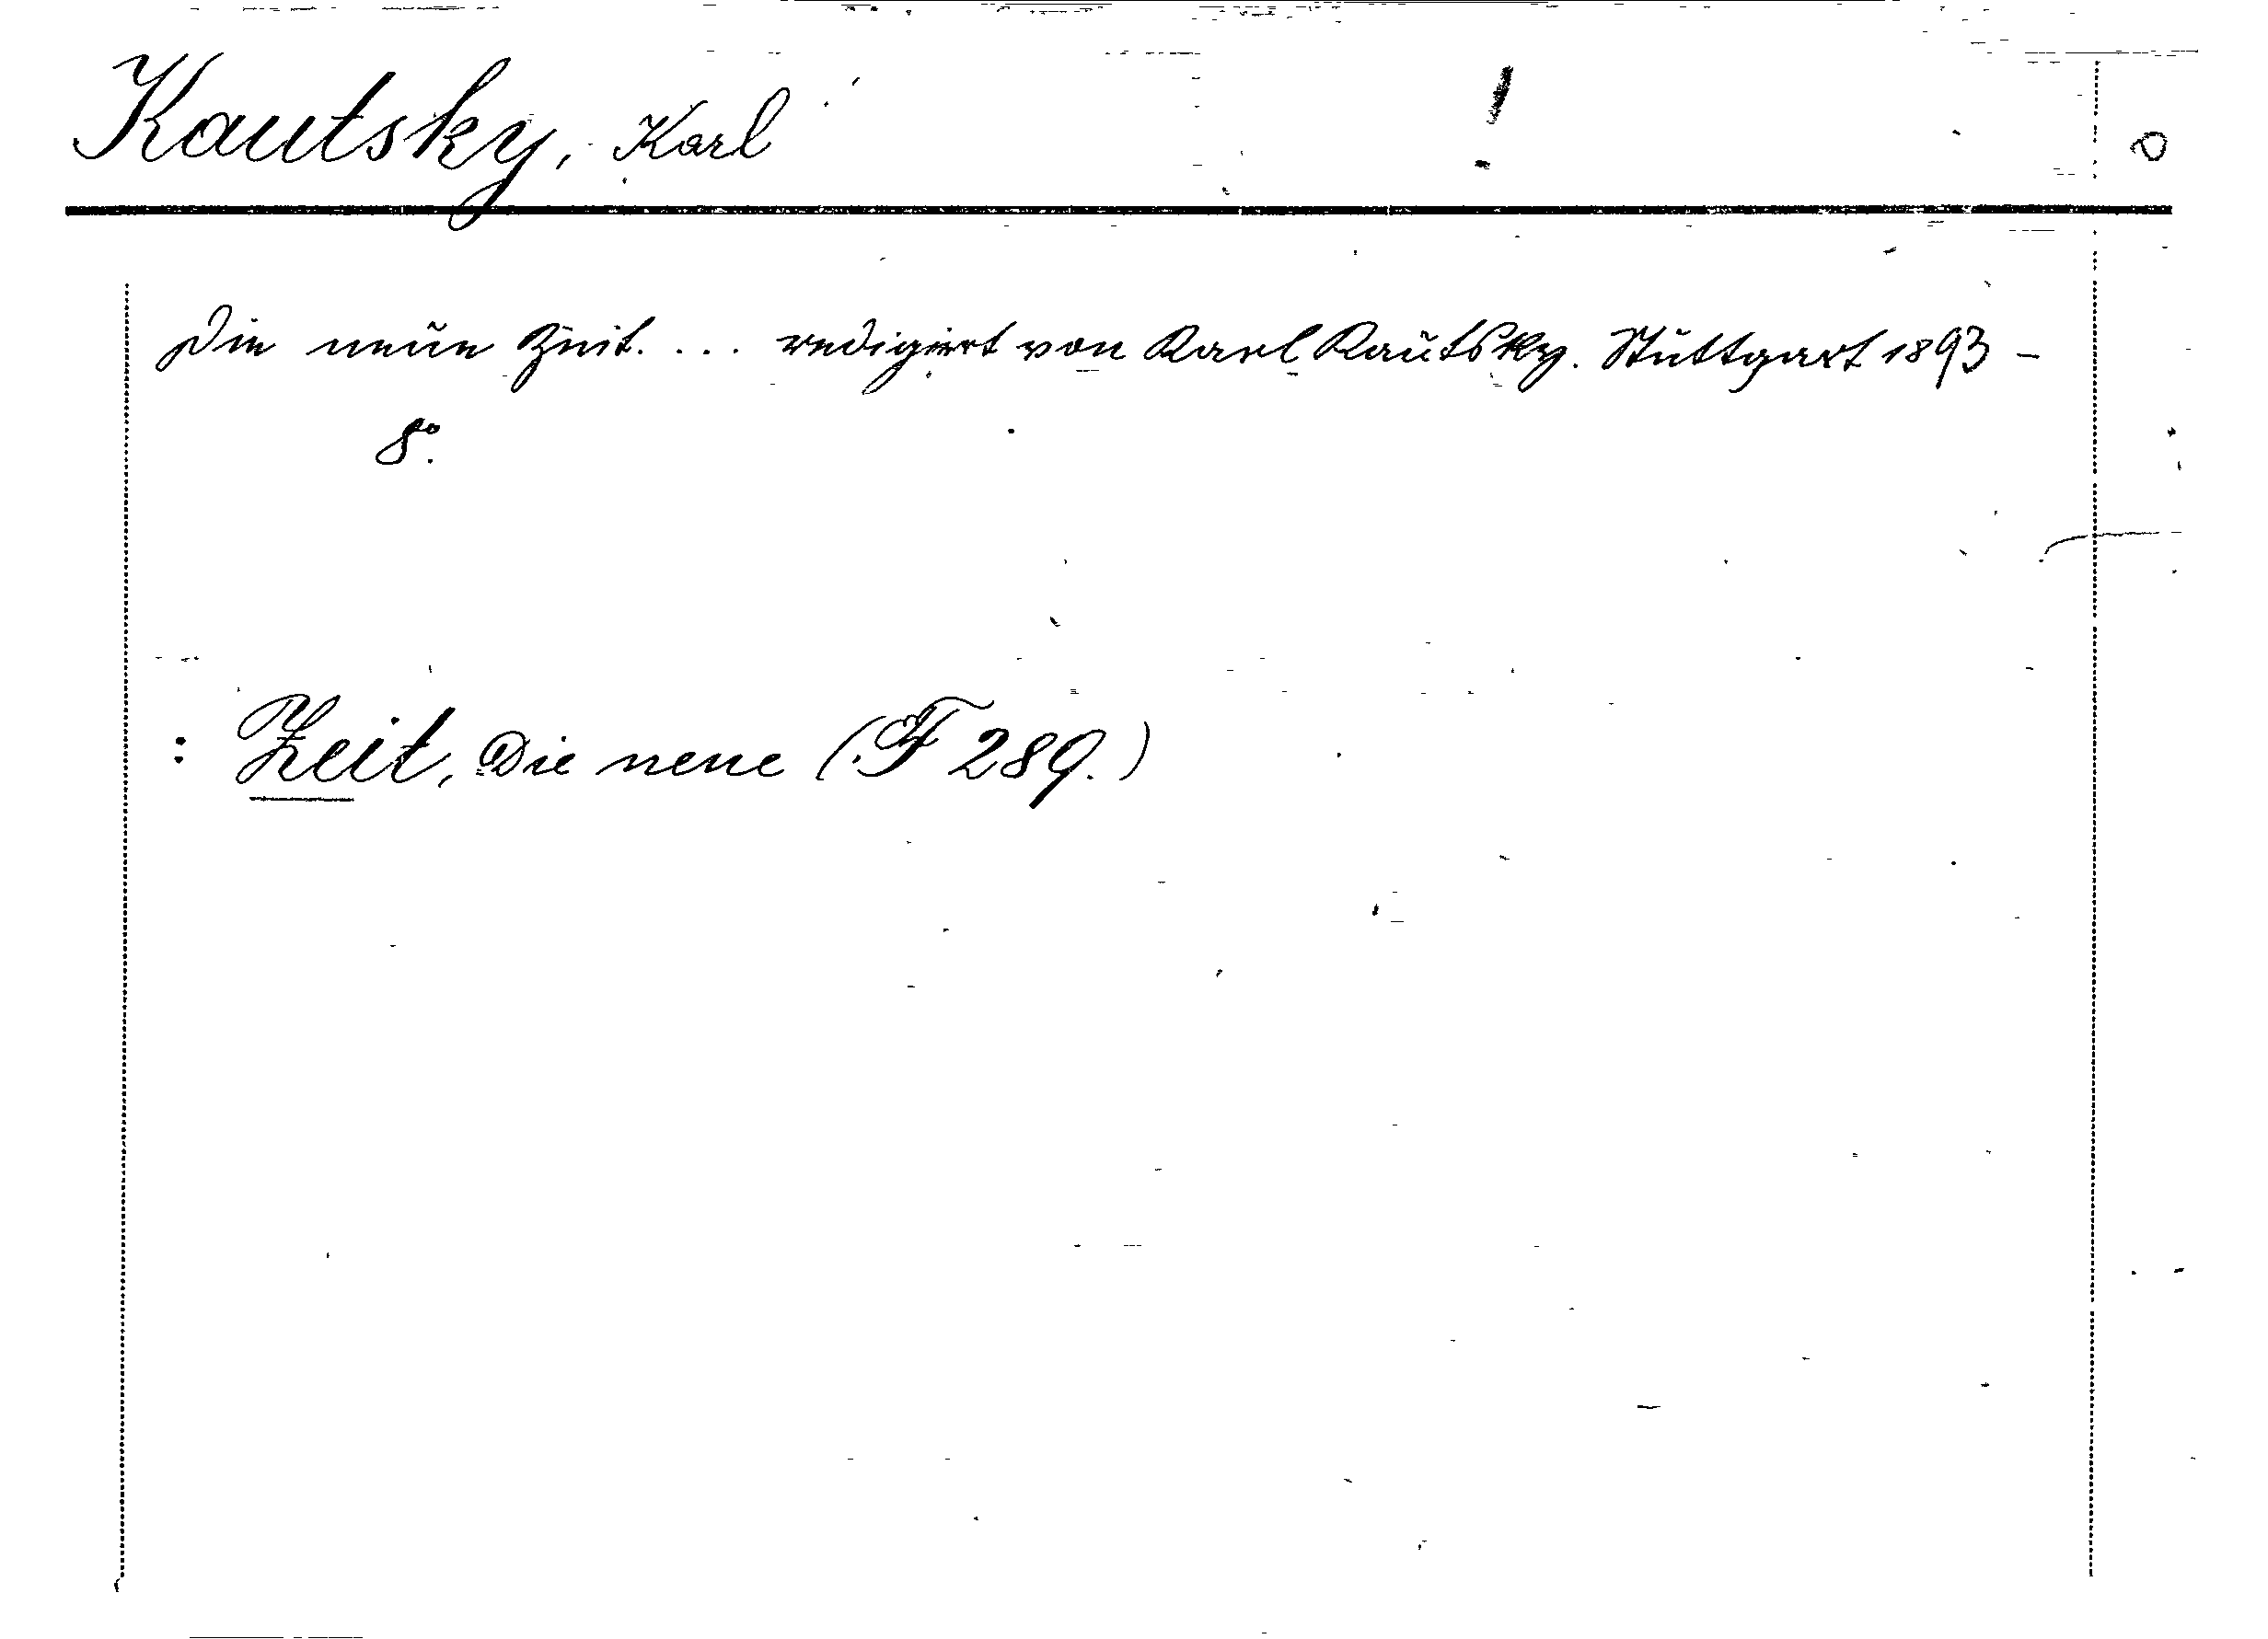 Kautsky, Karl !
Die neue Zeit. ... redigiert von Karl Kautsky. Stuttgart 1893 –
8°.
: Zeit, Die neue (F 289.)